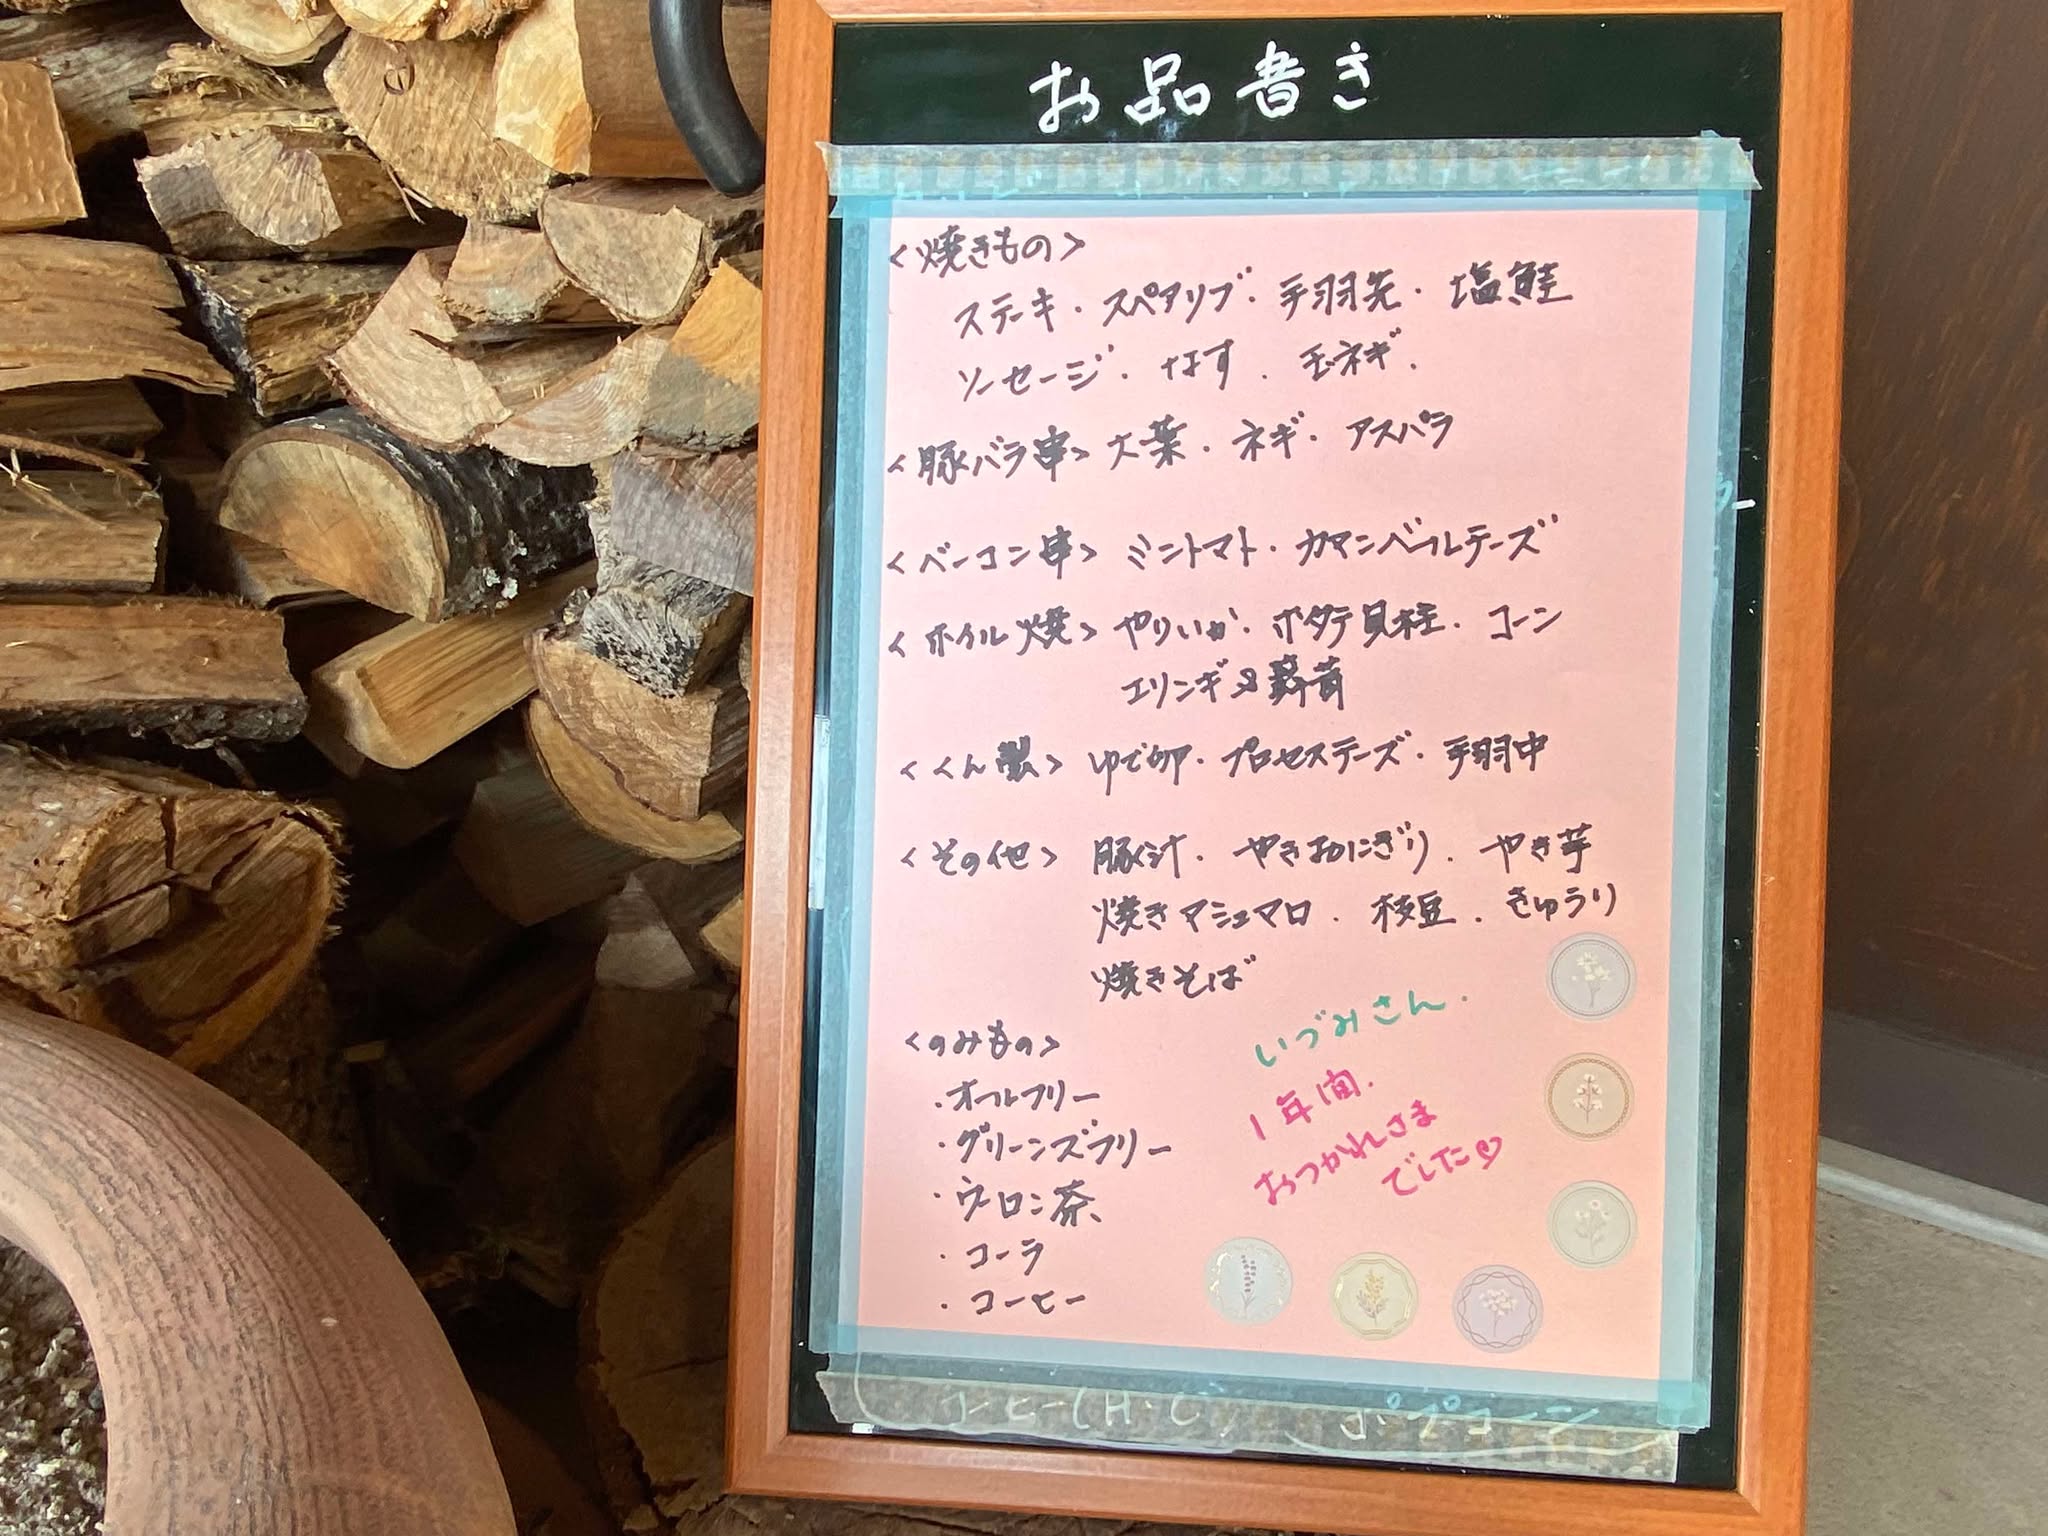 お品書き
<焼きもの>
ステーキ・スペアリブ・手羽先・塩鮭
ソーセージ・なす・玉ネギ・
<豚バラ串> 大葉・ネギ・アスパラ
<ベーコン串> ミニトマト・カマンベールチーズ
<ホイル焼> やりいか・ホタテ貝柱・コーン
エリンギ&舞茸
<くん製> ゆで卵・プロセスチーズ・手羽中
<その他> 豚汁・やきおにぎり・やき芋
焼きマシュマロ・枝豆・きゅうり
焼きそば
<のみもの>
・オールフリー
・グリーンズフリー
・ウーロン茶
・コーラ
・コーヒー
いづみさん.
1年間.
おつかれさま
でした♡
コーヒー(H・C) ポップコーン